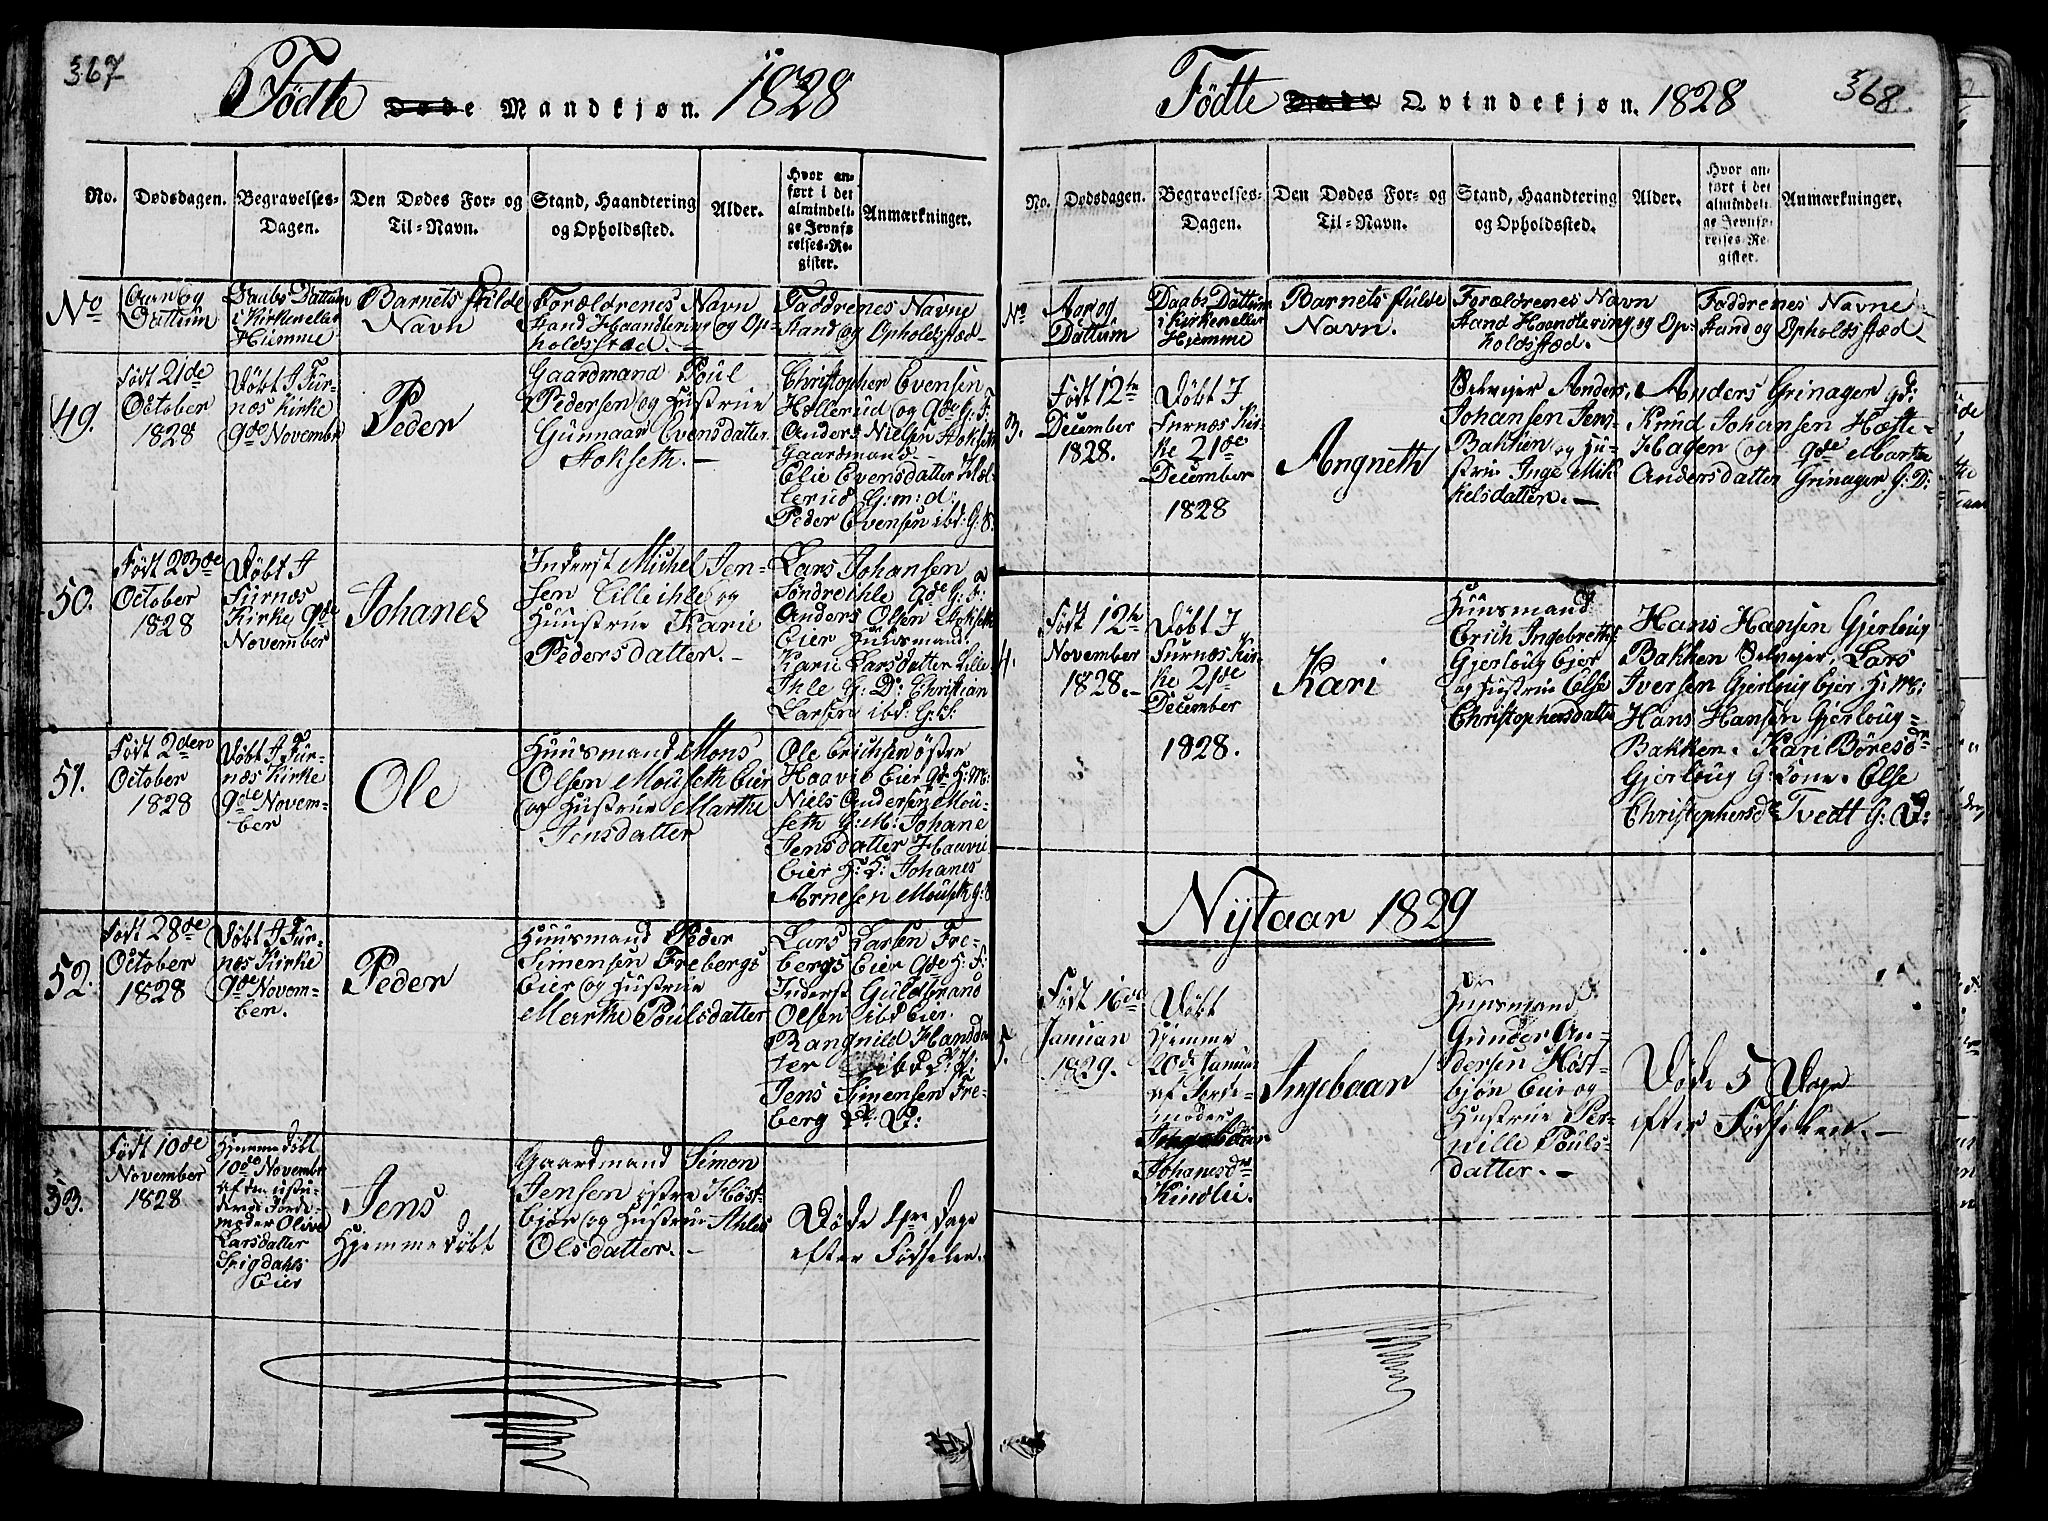 367
Fødte Døde Mandkjøn. 1828
No.
Dødsdagen.
Begravelses-
Dagen.
Den Dødes For- og
Til-Navn.
Stand, Haandtering
og Opholdssted.
Alder.
Hvor an-
ført i det
almindeli-
ge Jevnfø-
relses-Re-
gister.
Anmærkninger.
No
Aar og
Dattum
Daabs Dattum
i Kirken eller
Hiemme
Barnets fulde
Navn
Forældrenes Navn
Stand Haandtering og Op-
holdsstæd.
Faddrenes Navne
Stand og Opholdsstæd
49.
Født 21de
October
1828
Døbt I Fur-
næs Kirke
9de Novembr
Peder
Gaardmand Poul
Pedersen og Hustrue
Gunnaar Evensdatter
Stokseth.
Christopher Evensen
Hollerud og gde G: F:
Anders Nielsen Stokseth
Gaardmand
Elie Evensdatter Hol-
lerud G: m: d:
Peder Evensen ibd: G: S:
50.
Født 23de
October
1828
Døbt I
Furnæs
Kirke 9de
November
Johanes
Inderst Michel Jen-
sen Lilleihle og
Huustrue Karie
Pedersdatter.
Lars Johansen
Søndre ihle gde G: F:
Anders Olsen Stokseth
Eier Huusmand
Karie Larsdatter Lille
Ihle G: D: Christian
Larsen ibd: G: S:
51.
Født 2den
October
1828
Døbt I Fur-
næs Kirke
9de Novem-
ber
Ole
Huusmand Mons
Olsen Mouseth Eier
og Hustrue Marthe
Jensdatter
Ole Erichsen østre
Haavie Eier gde H: M:
Niels Andersen Mou-
seth G: M: Johane
Jensdatter Haavie
Eier H: D: Johanes
Arnesen Mouseth G: S
52.
Født 28de
October
1828
Døbt I Fur-
næs Kirke
9de Novem-
ber.
Peder
Huusmand Peder
Simensen Frebergs
Eier og Hustrue
Marthe Poulsdatter
Lars Larsen Fre-
bergs Eier gde H: F:
Inderst Guldbrand
Olsen ibd Eier.
Rangnild Hansdat
ter ibd
Jens Simensen Fre-
berg
53.
Født 10de
November
1828
Hjemmedøbt
10de Novembr
af den
Jorde-
moder Olive
Larsdatter
Srigdahls
Eier
Jens
Hjemmedøbt
Gaardmand Simon
Jensen østre Høst-
bjør og Hustrue Ahles
Olsdatter.
Døde Dage
efter Fødselen.
368
Fødte Døde Qvindekjøn. 1828
No.
Dødsdagen.
Begravelses-
Dagen.
Den Dødes For- og
Til-Navn.
Stand, Haandtering
og Opholdssted.
Alder.
Hvor an-
ført i det
almindeli-
ge Jevnfø-
relses-Re-
gister.
Anmærkninger.
No
Aar og
Dattum
Daabs Dattum
i Kirken eller
Hjemme
Barnets fulde
Navn.
Forældrenes Navn
Stand Haandtering og Op:
holdsstæd.
Faddrenes Navne
Stand og Opholdsstæd
3.
Født 12te
December
1828.
Døbt I
Furnæs Kir-
ke 21de
December
1828
Angneth
Selvejer Anders
Johansen Jens-
Bakken og Hu-
strue Inge Mik
kelsdatter.
Anders Grinager gd:
Knud Johansen Hæste-
Hagen og gde Marthe
Andersdatter Grinager G: D:
4.
Født 12te
November
1828.
Døbt I
Furnæs Kir-
ke 21de
December
1828.
Kari
Huusmand
Erich Ingebretts
Gjerloug Ejer
og Hustrue Else
Christophersdatter
Hans Hansen Gjerloug
Bakken Selvejer, Lars
Iversen Gjerloug Ejer H: M:
Hans Hansen Gjerloug-
Bakken. Kari Børesdr
Gjerloug G: Kone. Else
Christophersdr Tvedt G: D:
Nÿtaar 1829
5.
Født 16de
Januari
1829.
Døbt
Hjemme
20de Januar
af Jorde-
moder
Johanesdr
Kindlie.
Ingebaar
Huusmand
Gunder An-
dersen Høst-
bjør Eier og
Hustrue Per-
nille Pouls-
datter.
Døde 5 Dage
efter Fødselen.